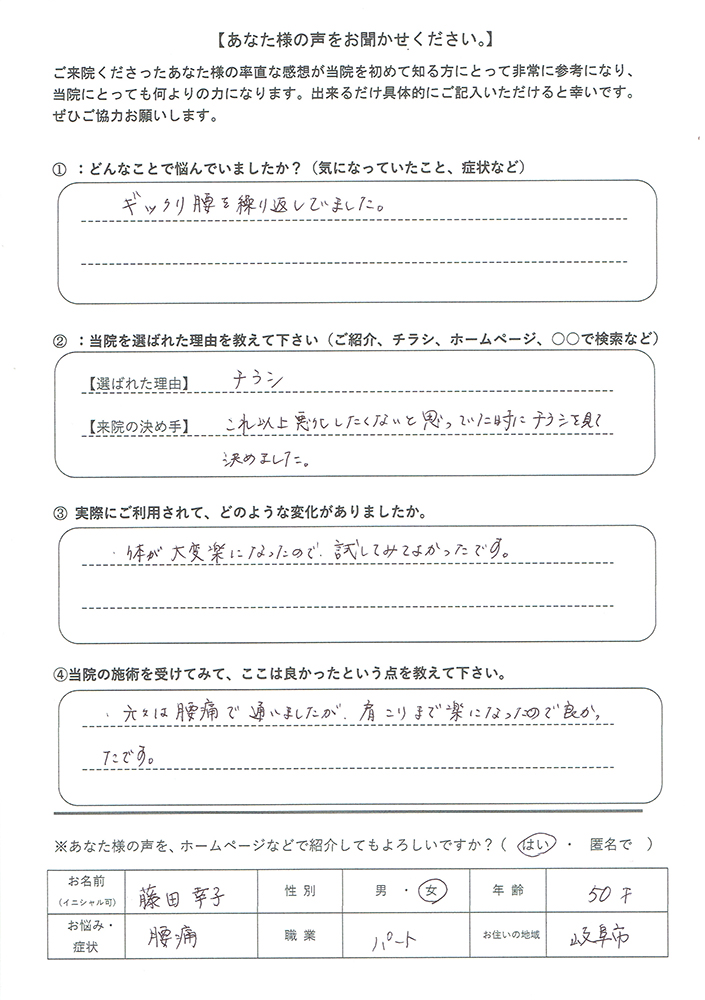 【あなた様の声をお聞かせください。】
ご来院くださったあなた様の率直な感想が当院を初めて知る方にとって非常に参考になり、
当院にとっても何よりの力になります。出来るだけ具体的にご記入いただけると幸いです。
ぜひご協力お願いします。
① ：どんなことで悩んでいましたか？（気になっていたこと、症状など）
ギックリ腰を繰り返していました。
② ：当院を選ばれた理由を教えて下さい（ご紹介、チラシ、ホームページ、○○で検索など）
【選ばれた理由】 チラシ
【来院の決め手】 これ以上悪化したくないと思っていた時にチラシを見て
決めました。
③ 実際にご利用されて、どのような変化がありましたか。
・体が大変楽になったので、試してみてよかったです。
④当院の施術を受けてみて、ここは良かったという点を教えて下さい。
・元々は腰痛で通いましたが、肩こりまで楽になったので良かっ
たです。
※あなた様の声を、ホームページなどで紹介してもよろしいですか？（ はい ・ 匿名で ）
お名前 藤田 幸子 性別 男 ・ 女 年齢 50才
（イニシャル可）
お悩み・ 腰痛 職業 パート お住いの地域 岐阜市
症状